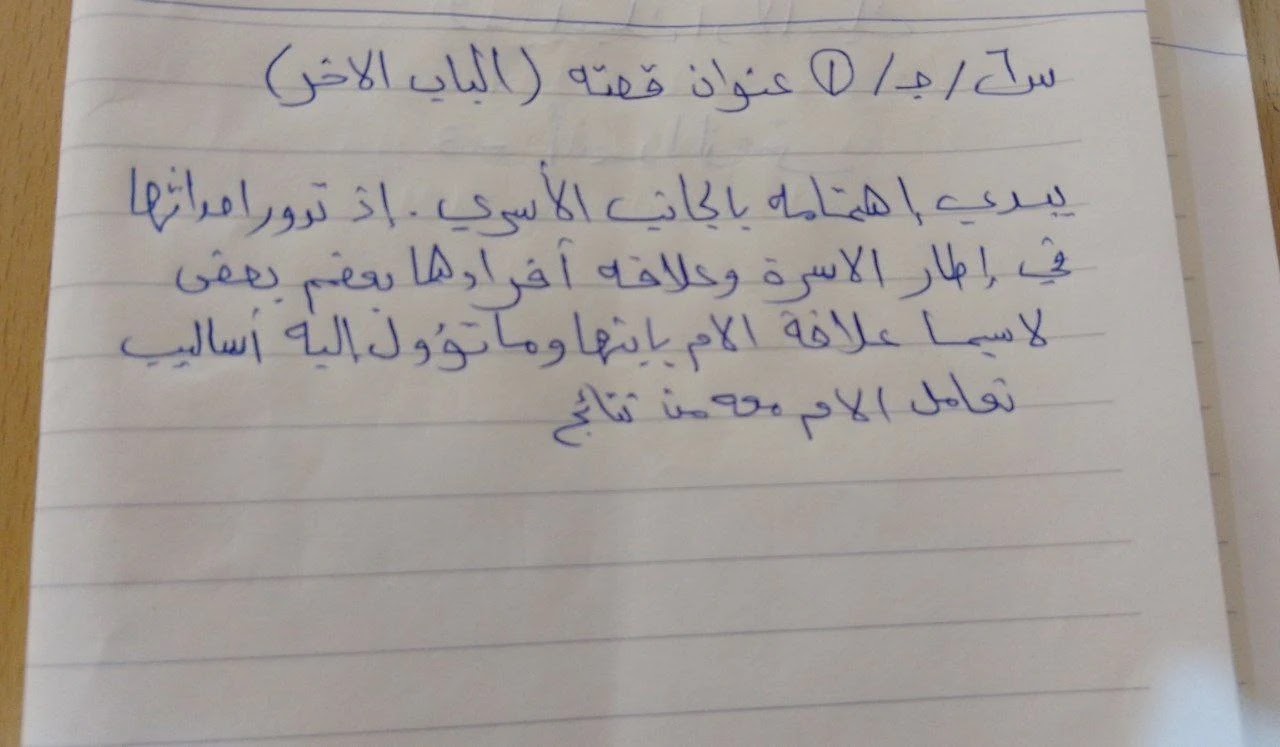 س٦/ ج/ ① عنوان قصته (الباب الاخر)
يبدي إهتمامه بالجانب الأسري . إذ تدور احداثها
في إطار الاسرة وعلاقه أفرادها بعضهم ببعض
لاسيما علاقة الام بابنها وما تؤول إليه أساليب
تعامل الام معه من نتائج